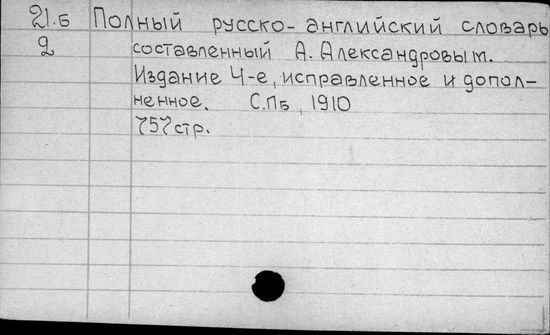 21.Б Полный русско-английский словарь
2 составленный А. Александровым.
Издание 4-е, исправленное и допол-
ненное. С.Пб, 1910
757стр.